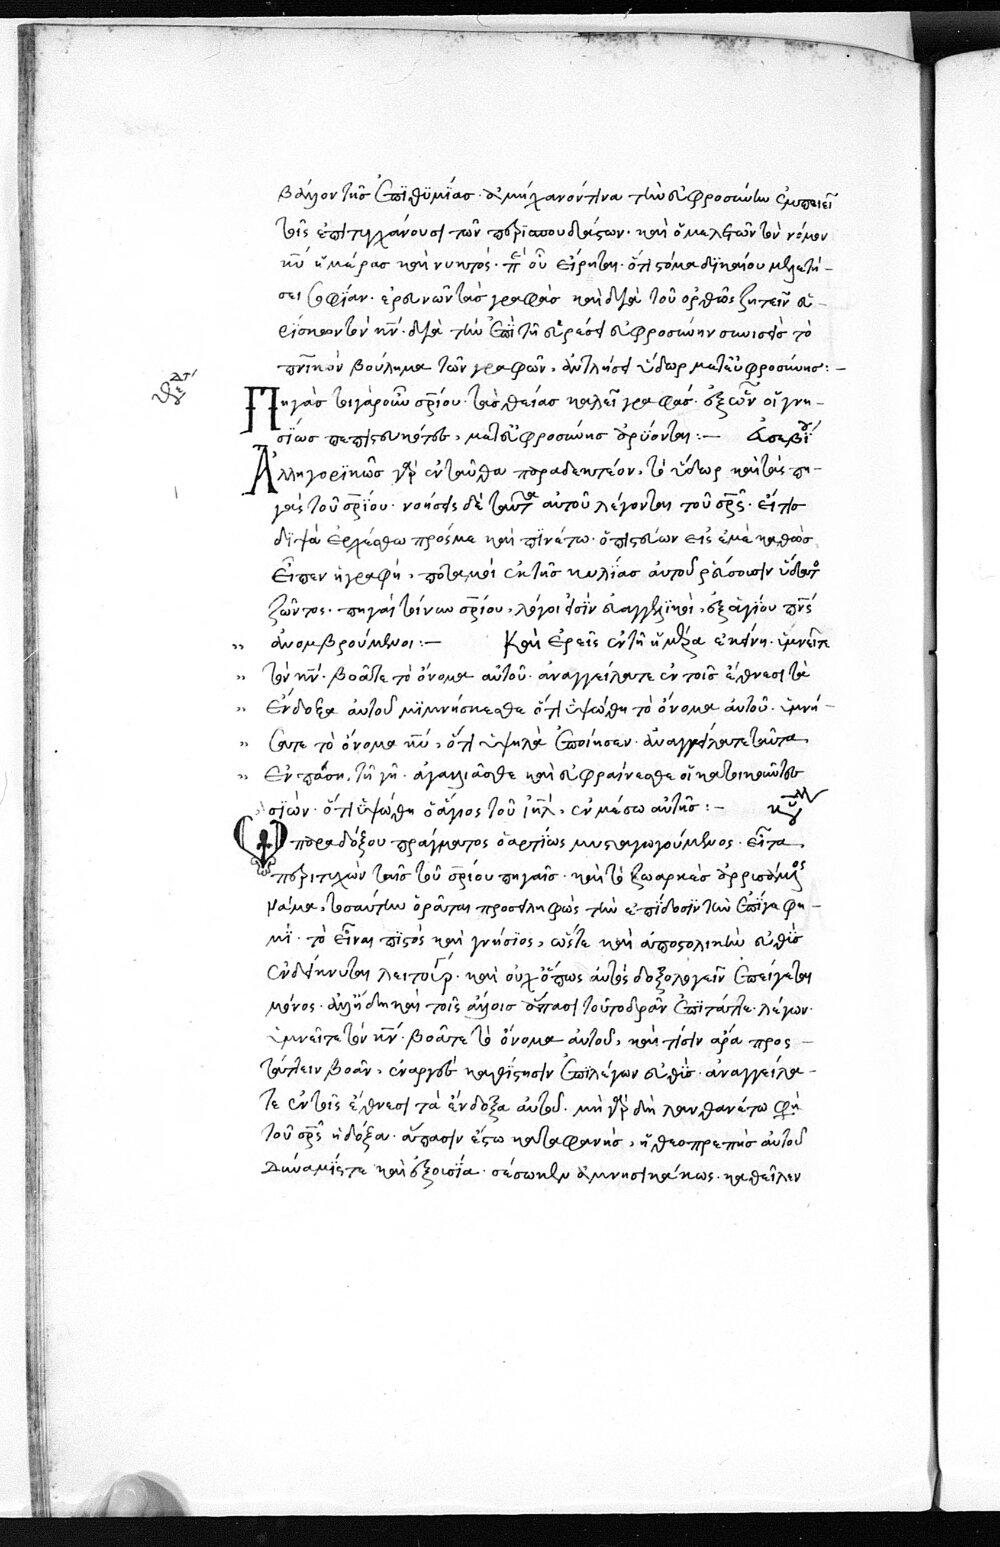 βάλλον τῆς ἐπιθυμίας· ἀμήχανόν τινα τὴν εὐφροσύνην ἐμποιεῖ
τοῖς ἐπιτυγχάνουσι τῶν περισπουδάστων· καὶ ὁ μελετῶν τὸν νόμον
κυ ἡμέρας καὶ νυκτός· περὶ οὗ εἴρηται· ὅτι στόμα δικαίου μελετή-
σει σοφίαν· ἐρευνῶν τὰς γραφὰς καὶ διὰ τοῦ ὀρθῶς ζητεῖν εὑ-
ρίσκων τὸν κν· διὰ τὴν ἐπὶ τῇ εὑρέσει εὐφροσύνην συνιεὶς τὸ
πνικὸν βούλημα τῶν γραφῶν, ἀντλήσει ὕδωρ μετ εὐφροσύνης:-
Πηγὰς τοιγαροῦν σρίου· τὰς θείας καλεῖ γραφάς· ἐξ ὧν οἱ γνη-
σίως πεπιστευκότες, μετ εὐφροσύνης ἀρύονται:- εὐσεβίου
Ἀλληγορικῶς γὰρ ἐνταῦθα παραδεκτέον, τὸ ὕδωρ καὶ τὰς πη-
γὰς τοῦ σρίου· νοήσεις δὲ ταῦτα αὐτοῦ λέγοντος τοῦ σρς· εἴ τις
διψᾷ ἐρχέσθω πρός με καὶ πινέτω· ὁ πιστεύων εἰς ἐμὲ καθὼς
εἶπεν ἡ γραφή, ποταμοὶ ἐκ τῆς κοιλίας αὐτοῦ ῥεύσουσιν ὕδατος
ζῶντος· πηγαὶ τοίνυν σρίου, λόγοι εἰσὶν εὐαγγελικοί, ἐξ ἁγίου πνς
ἀνομβρούμενοι:- Καὶ ἐρεῖς ἐν τῇ ἡμέρα ἐκείνη· ὑμνεῖτε
τὸν κν· βοᾶτε τὸ ὄνομα αὐτοῦ· ἀναγγείλατε ἐν τοῖς ἔθνεσι τὰ
ἔνδοξα αὐτοῦ μιμνήσκεσθε ὅτι ὑψώθη τὸ ὄνομα αὐτοῦ· ὑμνή-
σατε τὸ ὄνομα κυ, ὅτι ὑψηλὰ ἐποίησεν· ἀναγγείλατε ταῦτα
ἐν πάσῃ τῇ γῇ· ἀγαλλιᾶσθε καὶ εὐφραίνεσθε οἱ κατοικοῦντες
σιών· ὅτι ὑψώθη ὁ ἅγιος τοῦ ιηλ, ἐν μέσω αὐτῆς:-
παραδόξου πράγματος ὁ ἀρτίως μυσταγωγούμενος· εἶτα
περιτυχὼν ταῖς τοῦ σρίου πηγαῖς· καὶ τὸ ζωαρκὲς
νάμα, τοσαύτην ὁρᾶται προσειληφὼς τὴν ἐπίδοσιν τὴν ἐπί γε φη-
μὶ· τὸ εἶναι πιστὸς καὶ γνήσιος, ὥστε καὶ ἀποστολικὴν εὐθὺς
ἐνδείκνυται λειτουργ· καὶ οὐχ ὅπως αὐτὸς δοξολογεῖν ἐπείγεται
μόνος· ἀλλ ἤδη καὶ τοῖς ἄλλοις ἅπασι τοῦτο δρᾶν ἐπιτάττει λέγων·
ὑμνεῖτε τὸν κν· βοᾶτε τὸ ὄνομα αὐτοῦ, καὶ τίσιν ἄρα προς-
τάττειν βοᾶν, ἐναργὲς καθίστησιν ἐπιλέγων εὐθὺς· ἀναγγείλα-
τε ἐν τοῖς ἔθνεσι τὰ ἔνδοξα αὐτοῦ· μὴ γὰρ δὴ λανθανέτω φη
τοῦ σρς ἡ δόξα· ἅπασιν ἔστω καταφανὴς, ἡ θεοπρεπὴς αὐτοῦ
δύναμίς τε καὶ ἐξουσία· σέσωκεν ἀμνησικάκως· καθεῖλεν